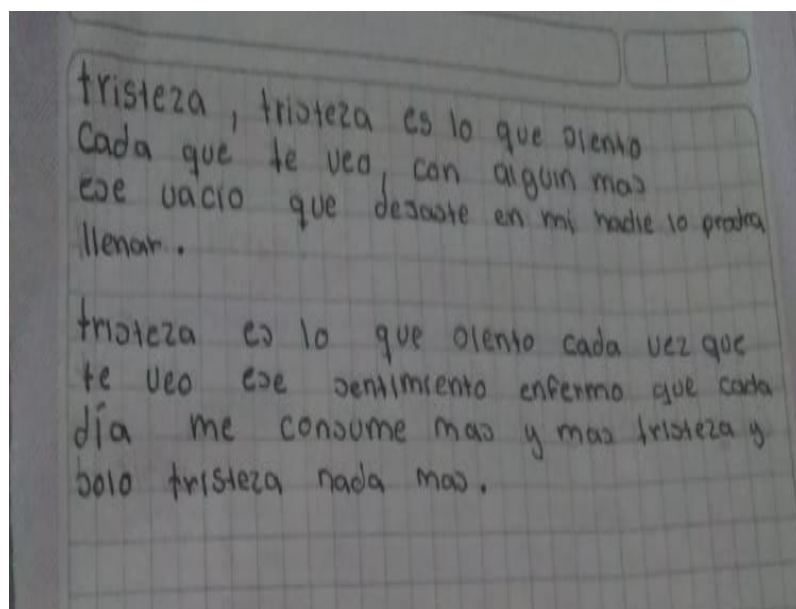 tristeza, tristeza es lo que siento
Cada que te veo, con alguin mas
ese vacio que desaste en mi nadie lo prodra
llenar.
tristeza es lo que siento cada vez que
te veo ese sentimiento enfermo que cada
día me consume mas y mas tristeza y
solo tristeza nada mas.